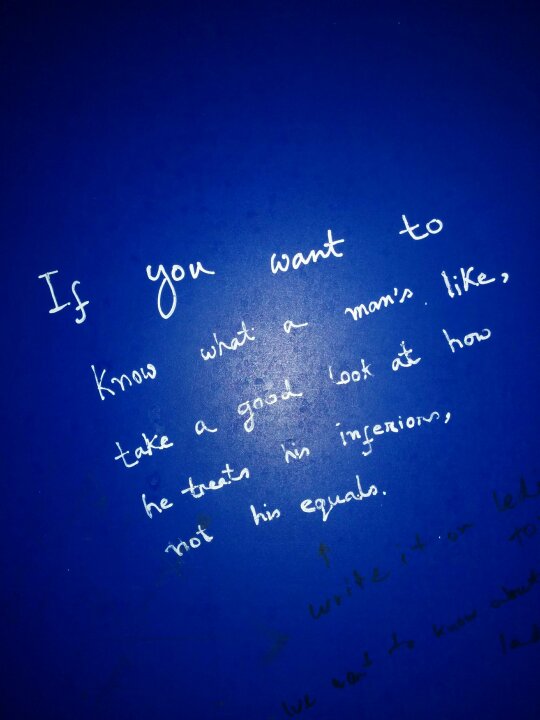 If you want to
know what a man's like,
take a good look at how
he treats his inferiors,
not his equals.
write it on
to
we want to know about